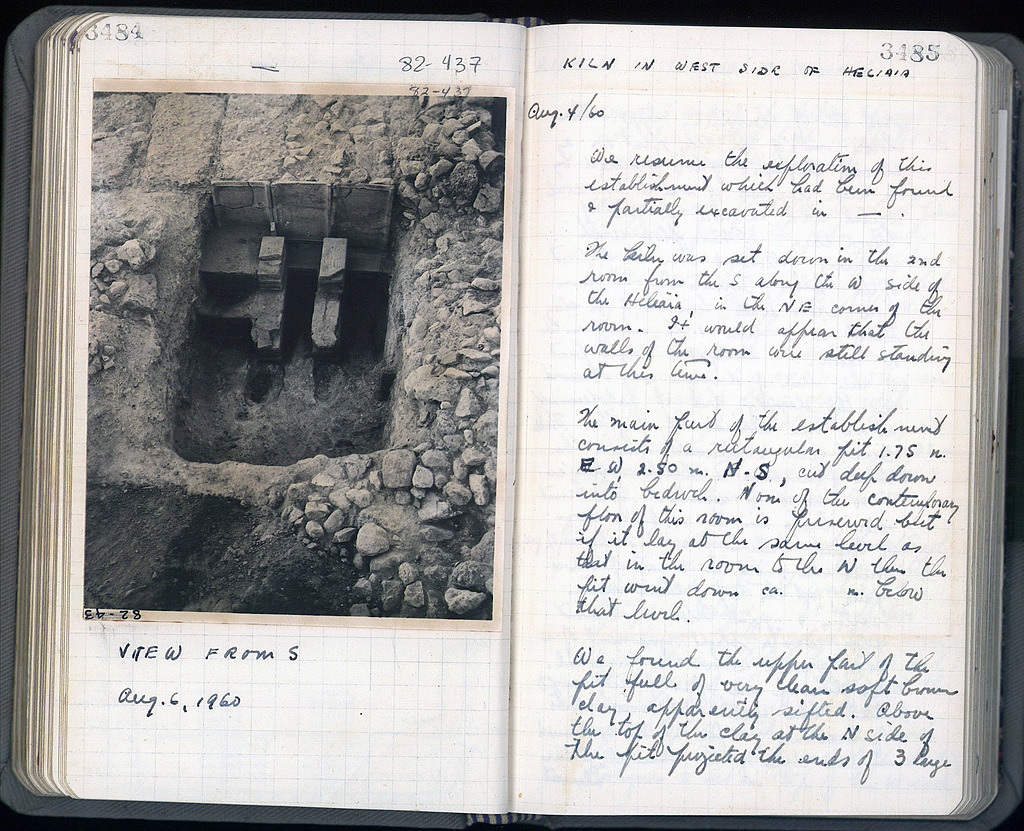 3484
— 82-437
82-437
82-43
VIEW FROM S
Aug. 6, 1960
3485
KILN IN WEST SIDE OF HELIAIA
Aug. 4/60
We resume the exploration of this
establishment which had been found
& partially excavated in — .
The kiln was set down in the 2nd
room from the S along the W side of
the Heliaia, in the NE corner of the
room. It would appear that the
walls of the room were still standing
at this time.
The main part of the establishment
consists of a rectangular pit 1.75 m.
E W, 2.50 m. N-S, cut deep down
into bedrock. None of the contemporary
floor of this room is preserved but
if it lay at the same level as
that in the room to the N then the
pit went down ca. m. below
that level.
We found the upper part of the
pit full of very clean soft brown
clay, apparently sifted. Above
the top of the clay at the N side of
the pit projected the ends of 3 large